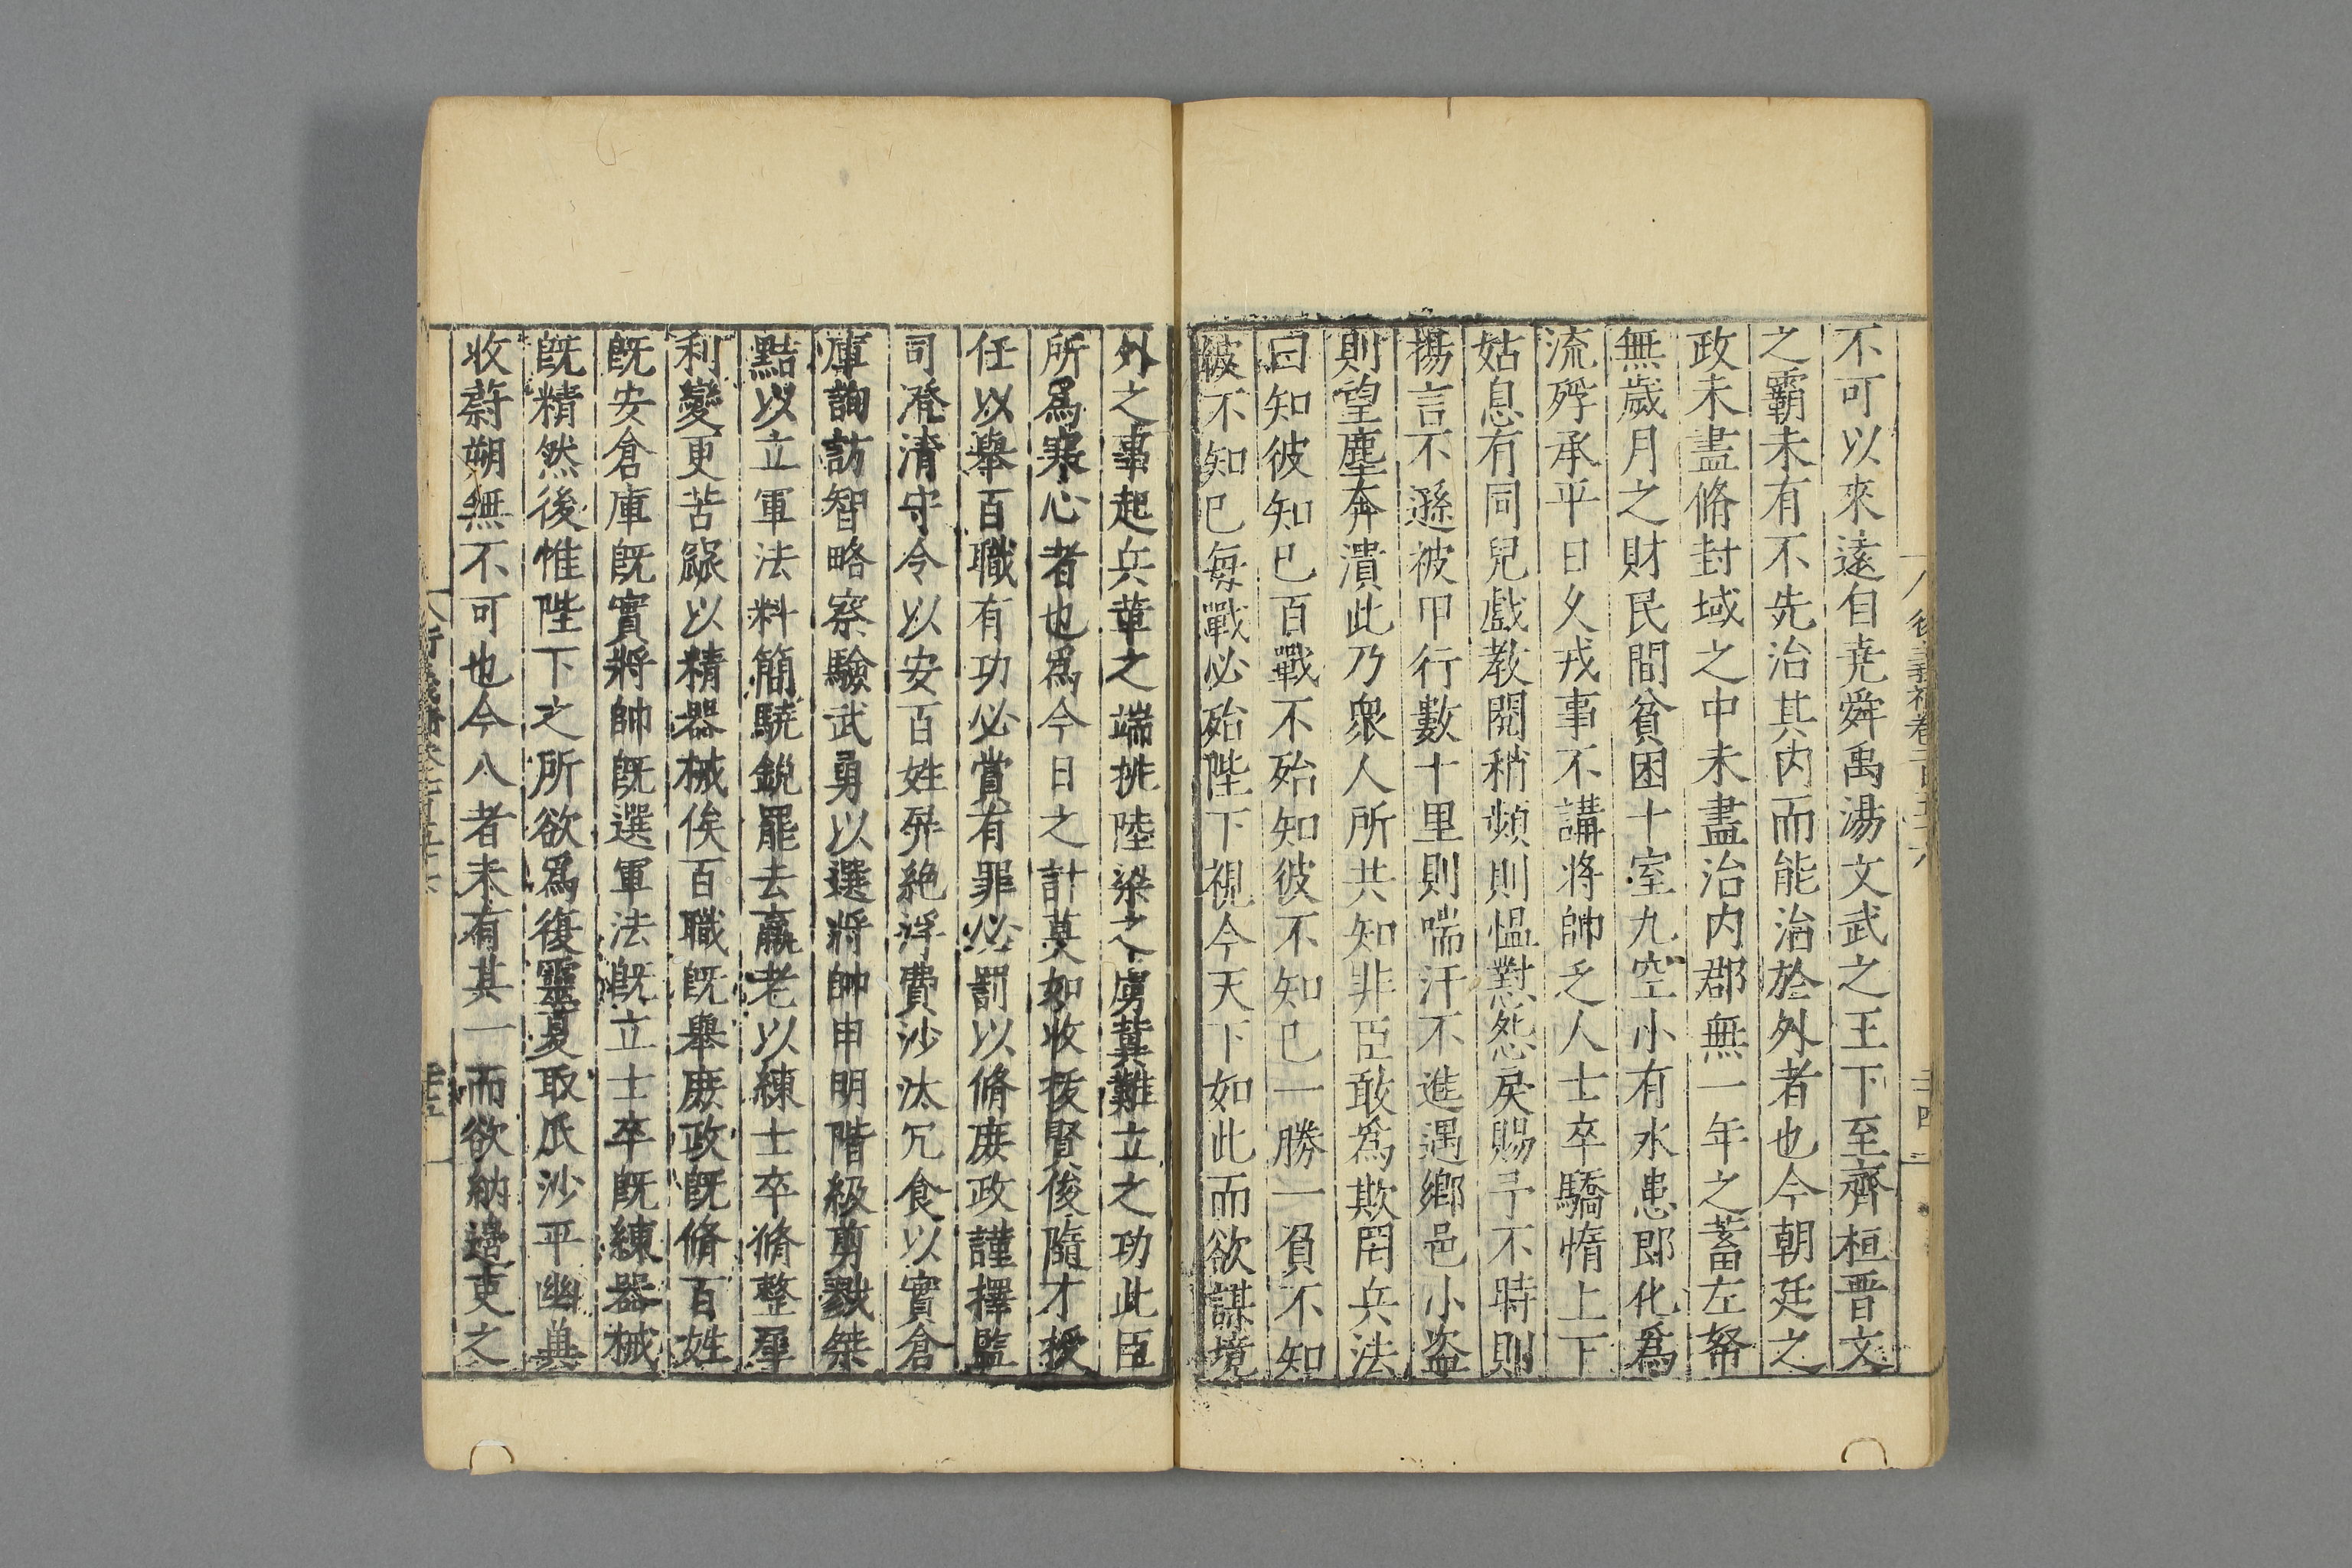 不可以來遠自堯舜禹湯文武之王下至齊桓晋文
之霸未有不先治其内而能治於外者也今朝廷之
政未盡脩封域之中未盡治内郡無一年之蓄左帑
無歲月之財民間貧困十室九空小有水患即化爲
流殍承平日久戎事不講將帥乏人士卒驕惰上下
姑息有同兒戲教閱稍頻則愠懟怨戾賜予不時則
揚言不遜被甲行數十里則喘汗不進遇鄉邑小盗
則望塵奔潰此乃衆人所共知非臣敢爲欺罔兵法
曰知彼知己百戰不殆知彼不知己一勝一負不知
彼不知己每戰必殆陛下視今天下如此而欲謀境
外之事起兵革之端挑陸梁之虜冀難立之功此臣
所爲寒心者也爲今日之計莫如收拔賢俊隨才授
任以舉百職有功必賞有罪必罰以脩庶政謹擇監
司澄清守令以安百姓屏絶浮費沙汰冗食以實倉
庫詢訪智略察驗武勇以選將帥申明階級剪戮桀
黠以立軍法料簡驍銳罷去羸老以練士卒脩整犀
利變更苦窳以精器械俟百職既舉庶政既脩百姓
既安倉庫既實將帥既選軍法既立士卒既練器械
既精然後惟陛下之所欲爲復靈夏取瓜沙平幽冀
收蔚朔無不可也今八者未有其一而欲納邊吏之